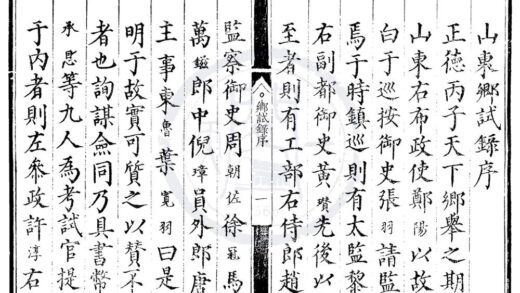 山東鄉試錄序
正德丙子天下鄉舉之期
山東右布政使鄭陽以故
白于巡按御史張羽請監
焉于時鎮巡則有太監黎
右副都御史黃瓚先後以
至者則有工部右侍郎趙
鄉試錄序
一
監察御史周朝佐徐冠馬
萬郎中倪璋員外郎唐
主事葉寬羽曰是
明于故實可質之以贊不
者也詢謀僉同乃具書幣
承恩等九人爲考試官提
于內者則左參政許淳右